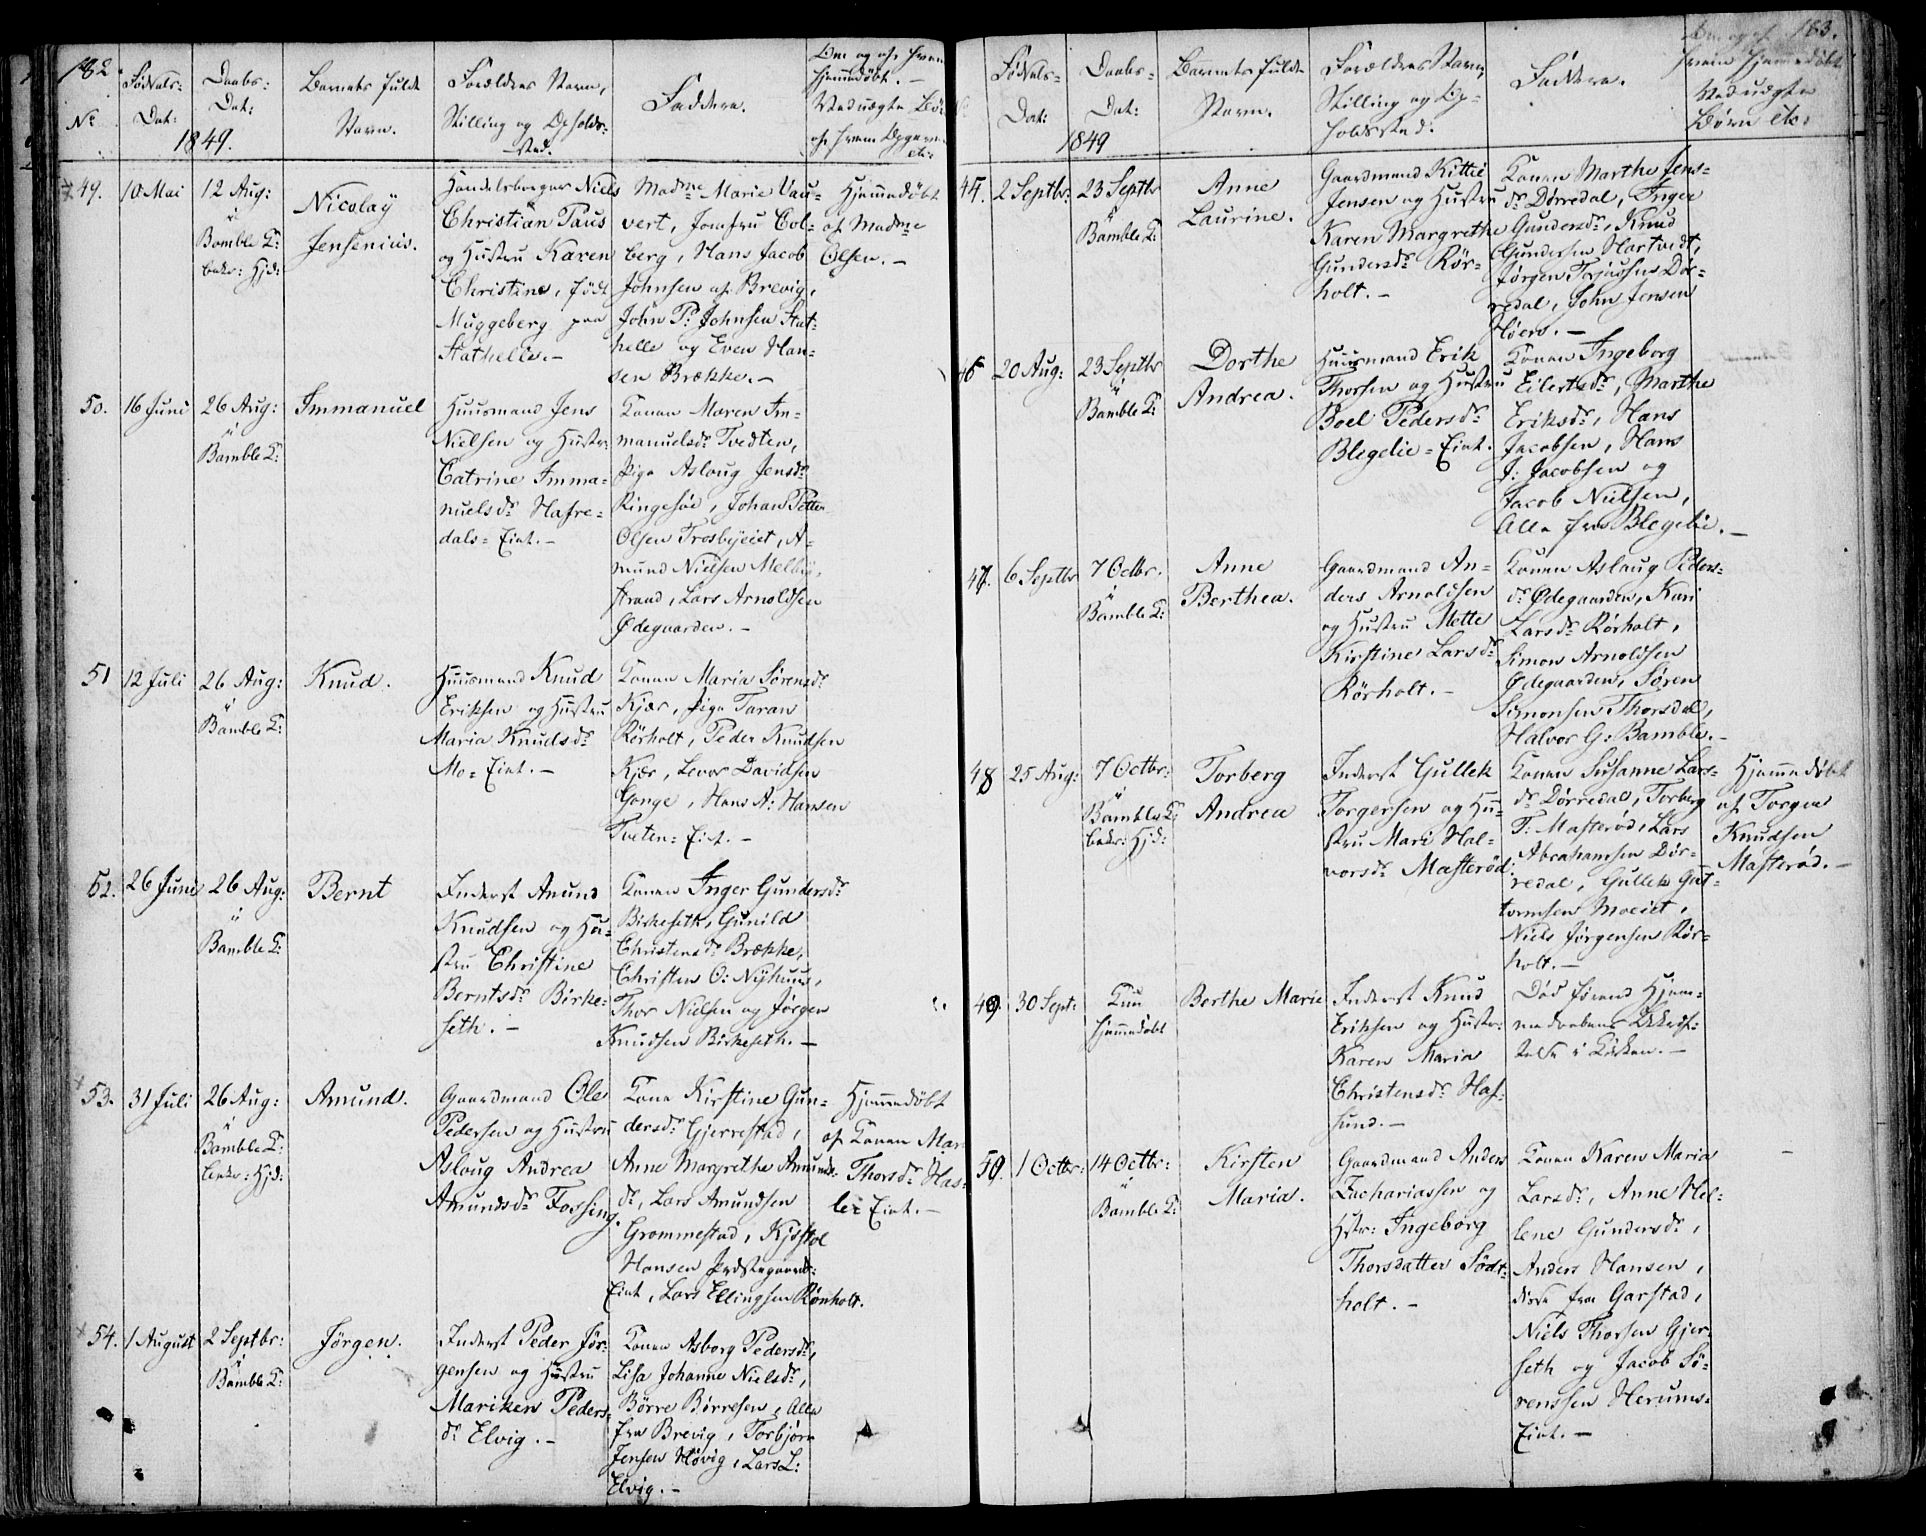 182
No
Fødsels-
Dat:
Daabs-
Dat:
1849.
Barnets fulde
Navn.
Forældres Navn,
Stilling og Opholds-
sted.
Faddere.
Om og af hvem
hjemmedøbt. -
Uægte
af hvem
etc.
49.
10 Mai
12 Aug:
i
Bamble K:
bekr: Hjd:
Nicolaÿ
Jensenius.
Handelsborger Niels
Christian Paus
og Hustru Karen
Christine, født
Muggeberg paa
Stathelle. -
Madme Marie Vau-
vert, Jomfru Col-
berg, Hans Jacob
Johnsen af Brevig,
John P: Johnsen Stat-
helle og Even Han-
sen Brække. -
Hjemmedøbt
af Madme
Olsen. -
50.
16 Juni
26 Aug:
i
Bamble K:
Immanuel
Huusmand Jens
Nielsen og Hustr:
Catrine Imma-
nuelsdr Hafre-
dals-Eiet. -
Konen Maren Im-
manuelsdr Tvedten,
Pige Aslaug Jensdr
Ringesøe, Johan Petter
Olsen Trosbyeiet, A-
mund Nielsen Melby,
strand, Lars Arnoldsen
Ødegaarden. -
51
12 Juli
26 Aug:
i
Bamble K:
Knud.
Huusmand Knud
Eriksen og Hustru
Maria Knudsdr
Mo-Eiet. -
Konen Maria Sørensdr
Kjær, Pige Taran
Rørholt, Peder Knudsen
Kjær, Levor Davidsen
Gonge, Hans A: Hansen
Tveten-Eiet. -
52.
26 Juni
26 Aug:
i
Bamble K:
Bernt
Inderst Amund
Knudsen og Hu-
stru Christine
Berntsdr Birke-
seth. -
Konen Inger Gundersdr
Birkeseth, Gunild
Christensdr Brække,
Christen O: Nyhuus,
Thor Nielsen og Jørgen
Knudsen Birkeseth. -
53.
31 Juli
26 Aug:
i
Bamble K:
bekr: Hjd:
Amund.
Gaardmand Ole
Pedersen og Hustru
Aslaug Andrea
Amundsdr Fossing.
Kone Kirstine Gun-
dersdr Gjerrestad,
Anne Margrethe Amunds-
dr, Lars Amundsen
Grommestad, Kjøstol
Hansen Præstegaards-
Eiet, Lars Ellingsen Rønholt.
Hjemmedøbt
af Konen Mar
Thorsdr Has-
ler Eiet. -
54.
1 August
2 Septbr:
i
Bamble K:
Jørgen.
Inderst Peder Jør-
gensen og Hustru
Mariken Peders-
dr Elvig. -
Konen Asborg Pedersdr,
Lisa Johanne Nielsdr,
Børre Børresen, Alle
fra Brevig, Torbjørn
Jensen Høvig, Lars L:
Elvig. -
183.
Fødsels-
Dat:
Daabs-
Dat:
1849
Barnets fulde
Navn.
Forældres Navn,
Stilling og Op-
holdssted.
Faddere.
Om og af
hvem hjemmedøbt
Uægte
Børn etc:
45.
2 Septbr:
23 Septbr
i
Bamble K:
Anne
Laurine.
Gaardmand Kittil
Jensen og Hustru
Karen Margrethe
Gundersdr Rør-
holt. -
Konen Marthe Jens-
dr Dørredal, Inger
Gundersdr, Knud
Gundersen Hartvedt,
Jørgen Dør-
redal, John Jensen
Høen. -
46
20 Aug:
23 Septbr
i
Bamble K:
Dorthe
Andrea.
Huusmand Erik
Thorsen og Hustru
Boel Pedersdr
Blegelie-Eiet.
Konen Ingeborg
Eilertsdr, Marthe
Eriksdr, Hans
Jacobsen, Hans
J: Jacobsen og
Jacob Nielsen,
Alle fra Blegelie. -
47.
6 Septbr
7 Octbr.
i
Bamble K:
Anne
Berthea.
Gaardmand An-
ders Arnoldsen
og Hustru Mette
Kirstine Larsdr
Rørholt. -
Konen Aslaug Peders-
dr Ødegaarden, Kari
Larsdr Rørholt,
Simon Arnoldsen
Ødegaarden, Søren
Simonsen Thorsdal,
Halvor G: Bamble. -
48
25 Aug:
7 Octbr:
i
Bamble K:
bekr: Hjd:
Torberg
Andrea
Inderst Gullek
Torgersen og Hu-
stru Mari Hal-
vorsdr Masterød.
Konen Susanne Lars-
dr Dørredal, Torberg
T: Masterød, Lars
Abrahamsen Dør-
redal, Gullek Gut-
tormsen Moeiet,
Niels Jørgensen Rør-
holt. -
Hjemmedøbt
af Torger
Knudsen
Masterød. -
49.
30 Sept:
Kun
hjemmedøbt
Berthe Marie
Inderst Knud
Eriksen og Hustr:
Karen Maria
Christensdr Haf-
sund. -
Død førend Hjem-
medaabens Bekræf-
telse i Kirken. -
50.
1 Octbr:
14 Octbr:
i
Bamble K:
Kirsten
Maria.
Gaardmand Anders
Zachariassen og
Hstr: Ingeborg
Thorsdatter Sødt-
holt. -
Konen Karen Maria
Larsdr, Anne Hel-
lene Gundersdr,
Anders Hansen,
disse fra Garstad,
Niels Thorsen Gjer-
seth og Jacob Sø-
renssen Herums-
Eiet. -